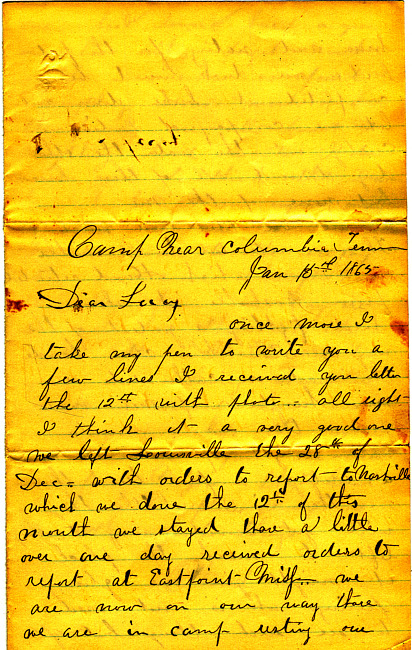 Camp Near Columbia Tenn
Jan 15th 1865
Dear Lucy
once more I
take my pen to write you a
few lines I received you letter
the 12th with photo = all right
I think it a very good one
we left Louisville the 28th of
Dec = with orders to report to Nashville
which we done the 12th of this
month we stayed thare a little
over one day received orders to
report at Eastpoint Miss. we
are now on our way thare
we are in camp resting our